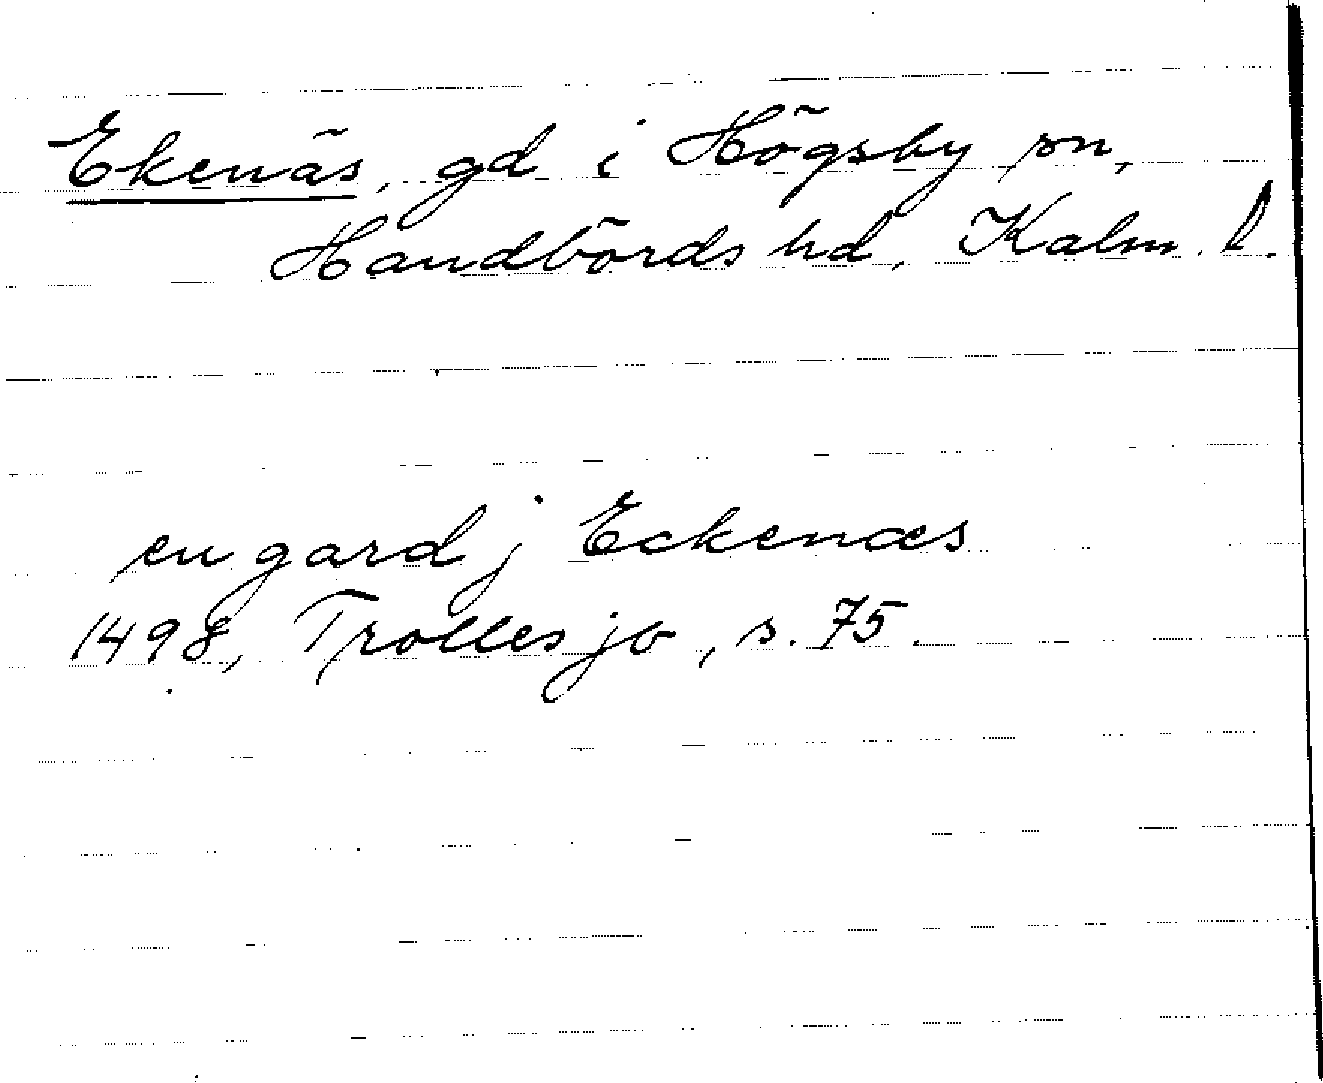 Ekenäs, gd i Högsby sn,
Handbörds hd, Kalm. l.
en gard j Eckenæs
1498, Trolles jb, s. 75.